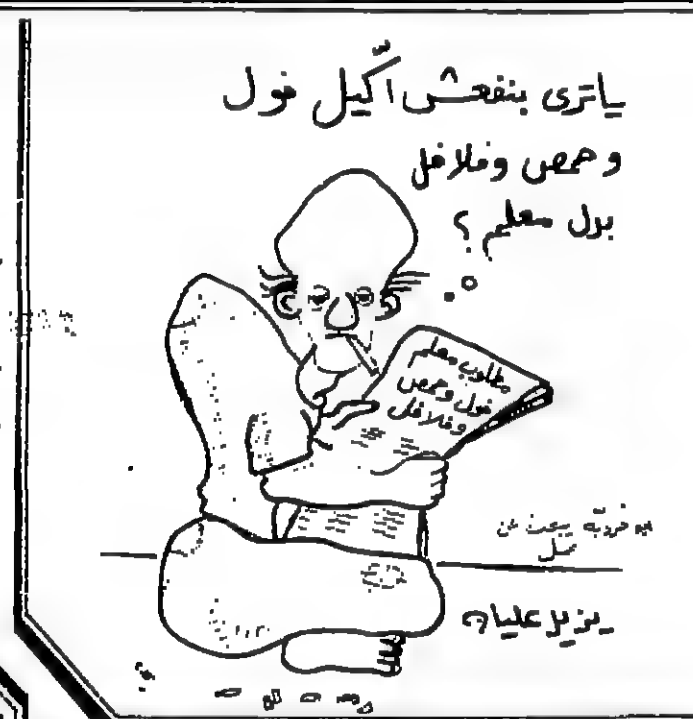 ياترى بنفعش اكّيل فول
وحمص وفلافل
بدل معلم ؟
مطلوب معلم
فول وحمص
وفلافل
ابو فروة يبحث عن
عمل
يزيد عليان